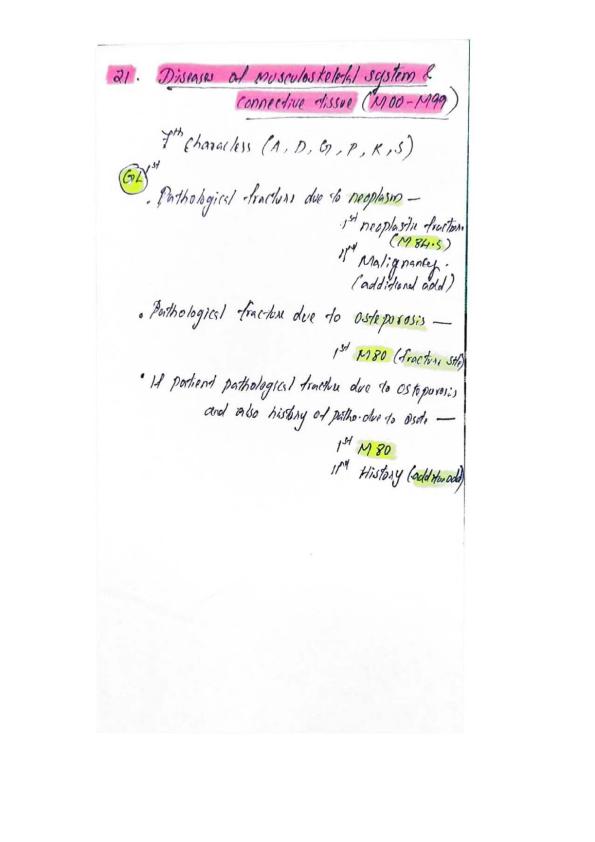 21. Diseases of musculoskeletal system &
connective tissue (M00-M99)
7th characters (A, D, G, P, K, S)
GL 1st
. Pathological fractures due to neoplasm —
1st neoplastic fracture
(M84.5)
IInd Malignancy.
(additional add)
. Pathological fracture due to osteporosis —
1st M80 (fracture site)
• If patient pathological fracture due to ostoporosis
and also history of patho. due to oste —
1st M80
IInd History (addition add)